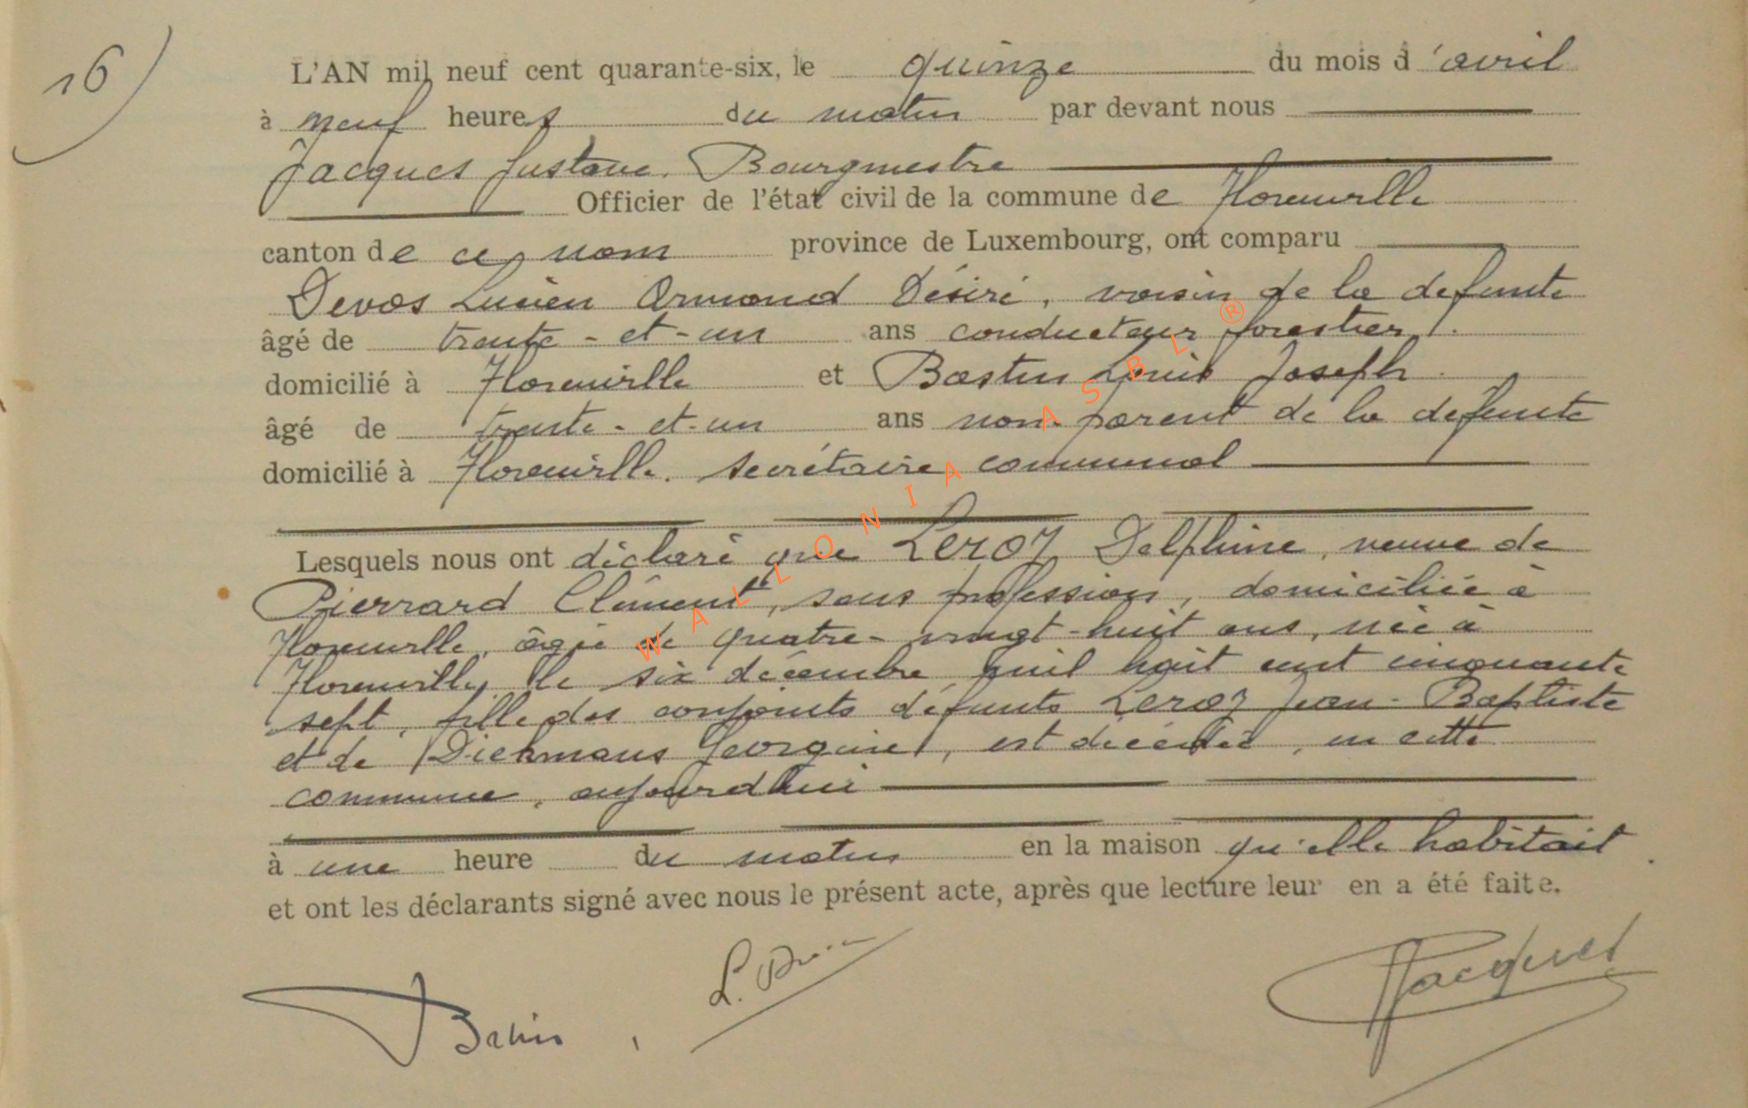 16)
L'AN mil neuf cent quarante-six, le quinze du mois d'avril
à neuf heures du matin par devant nous
Jacques Gustave, Bourgmestre
Officier de l'état civil de la commune de Florenville
canton de ce nom province de Luxembourg, ont comparu
Devos Lucien Armand Désiré, voisin de la defunte
âgé de trente-et-un ans conducteur forestier,
domicilié à Florenville et Bastin Louis Joseph
âgé de trente-et-un ans non parent de la defunte
domicilié à Florenville, secrétaire communal
Lesquels nous ont déclaré que Leroy Delphine, veuve de
Pierrard Clément, sans profession, domiciliée à
Florenville, âgée de quatre-vingt-huit ans, née à
Florenville, le six décembre mil huit cent cinquante
sept, fille des conjoints défunts Leroy Jean-Baptiste
et de Diekmans Georgine, est décédée, en cette
commune, aujourd'hui
à une heure du matin en la maison qu'elle habitait.
et ont les déclarants signé avec nous le présent acte, après que lecture leur en a été faite.
Jacques
WALLONIA ASBL ®